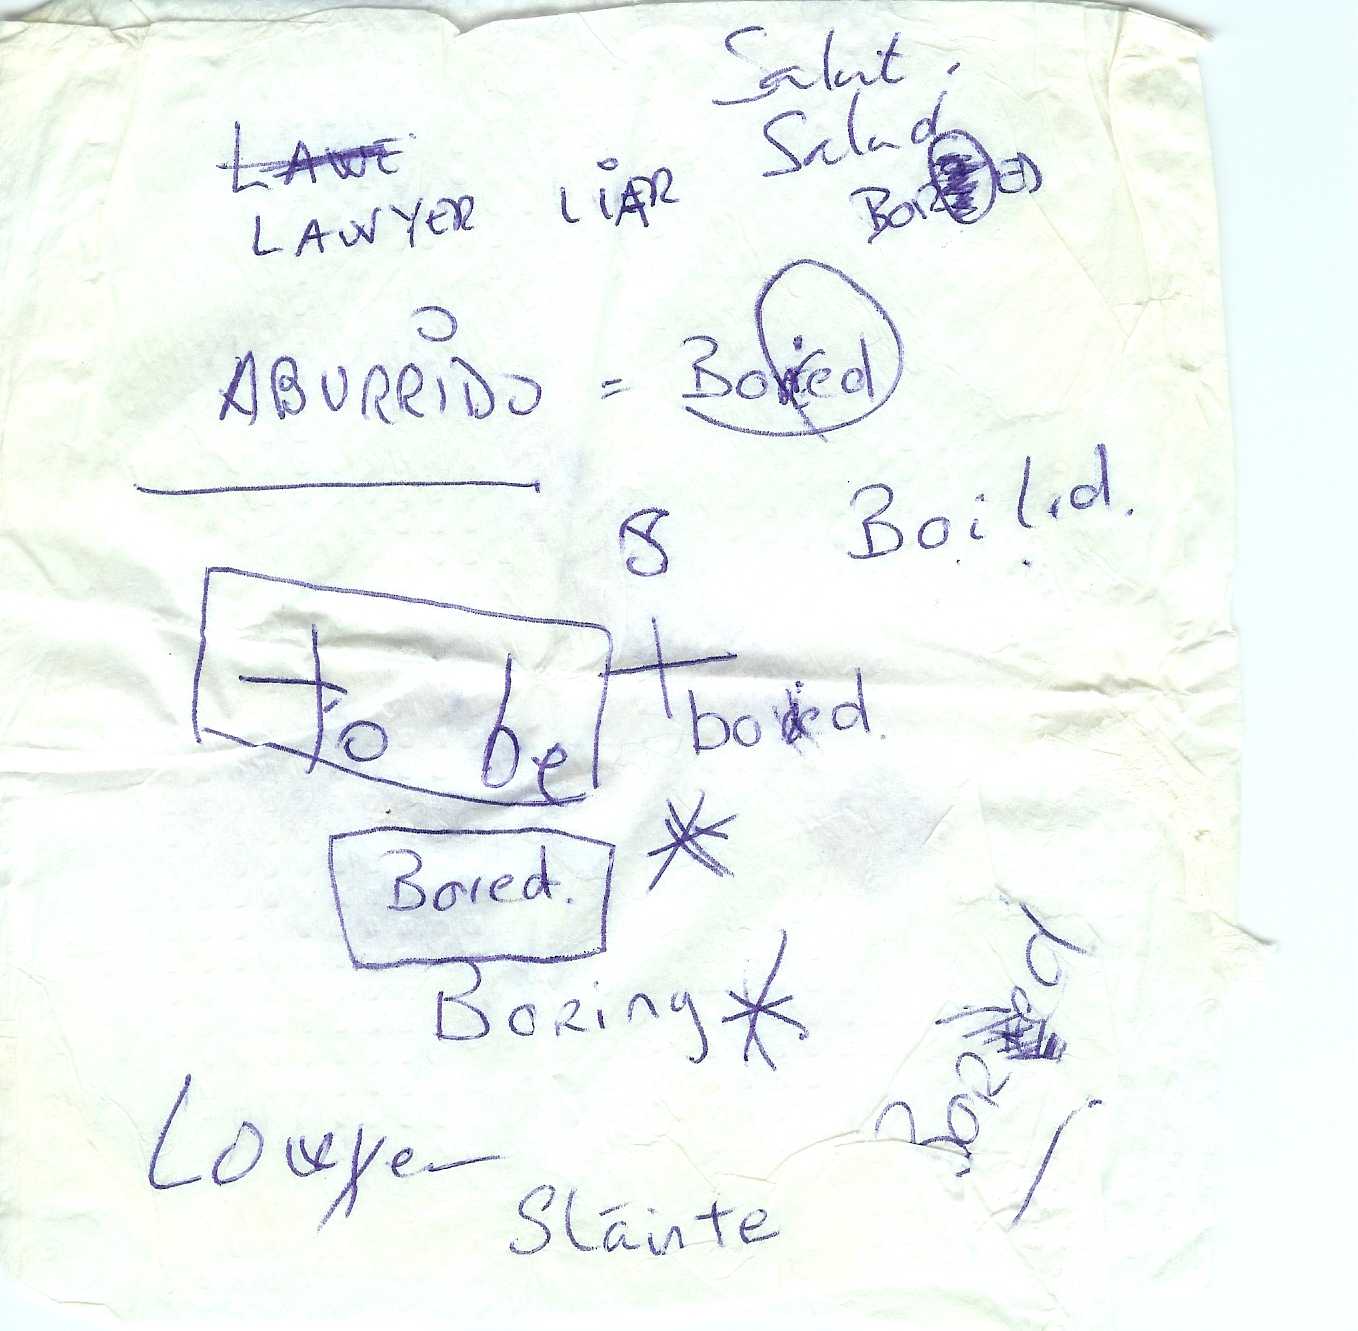 Salut.
Salad
LAWE
LAWYER LIAR
BORED
O
ABURRIDO = Bored
8 Boiled.
to be + bored.
Bored. *
Boring *
Bored
Lowyer
Sláinte